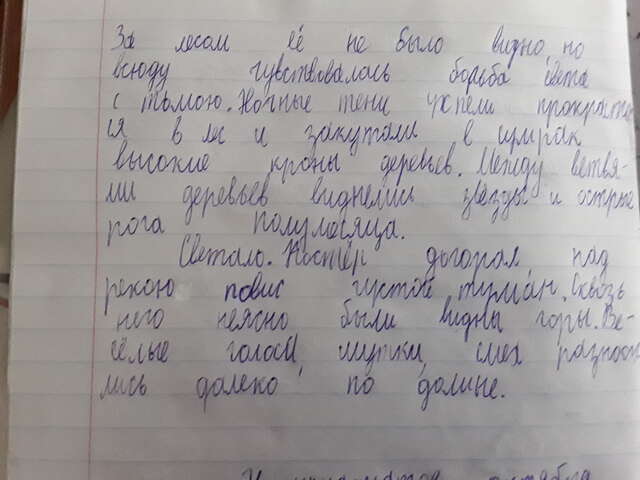 За лесом её не было видно, но
всюду чувствовалась борьба света
с тьмою. Ночные тени успели прокрасть
ся в лес и закутали в сумрак
высокие кроны деревьев. Между ветвя-
ми деревьев виднелись звёзды и острые
рога полумесяца.
Светало. Костёр догорал над
рекою повис густой туман. Сквозь
него неясно были видны горы. Ве-
сёлые голоса, шутки, смех разноси
лись далеко по долине.
октября